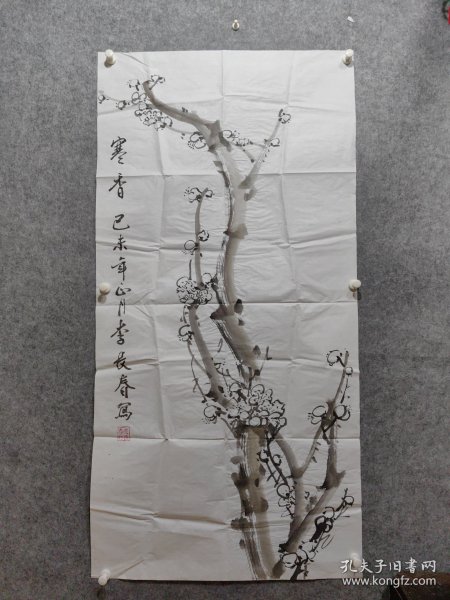 寒香 己未年正月李长春写
孔夫子旧书网
www.kongfz.com